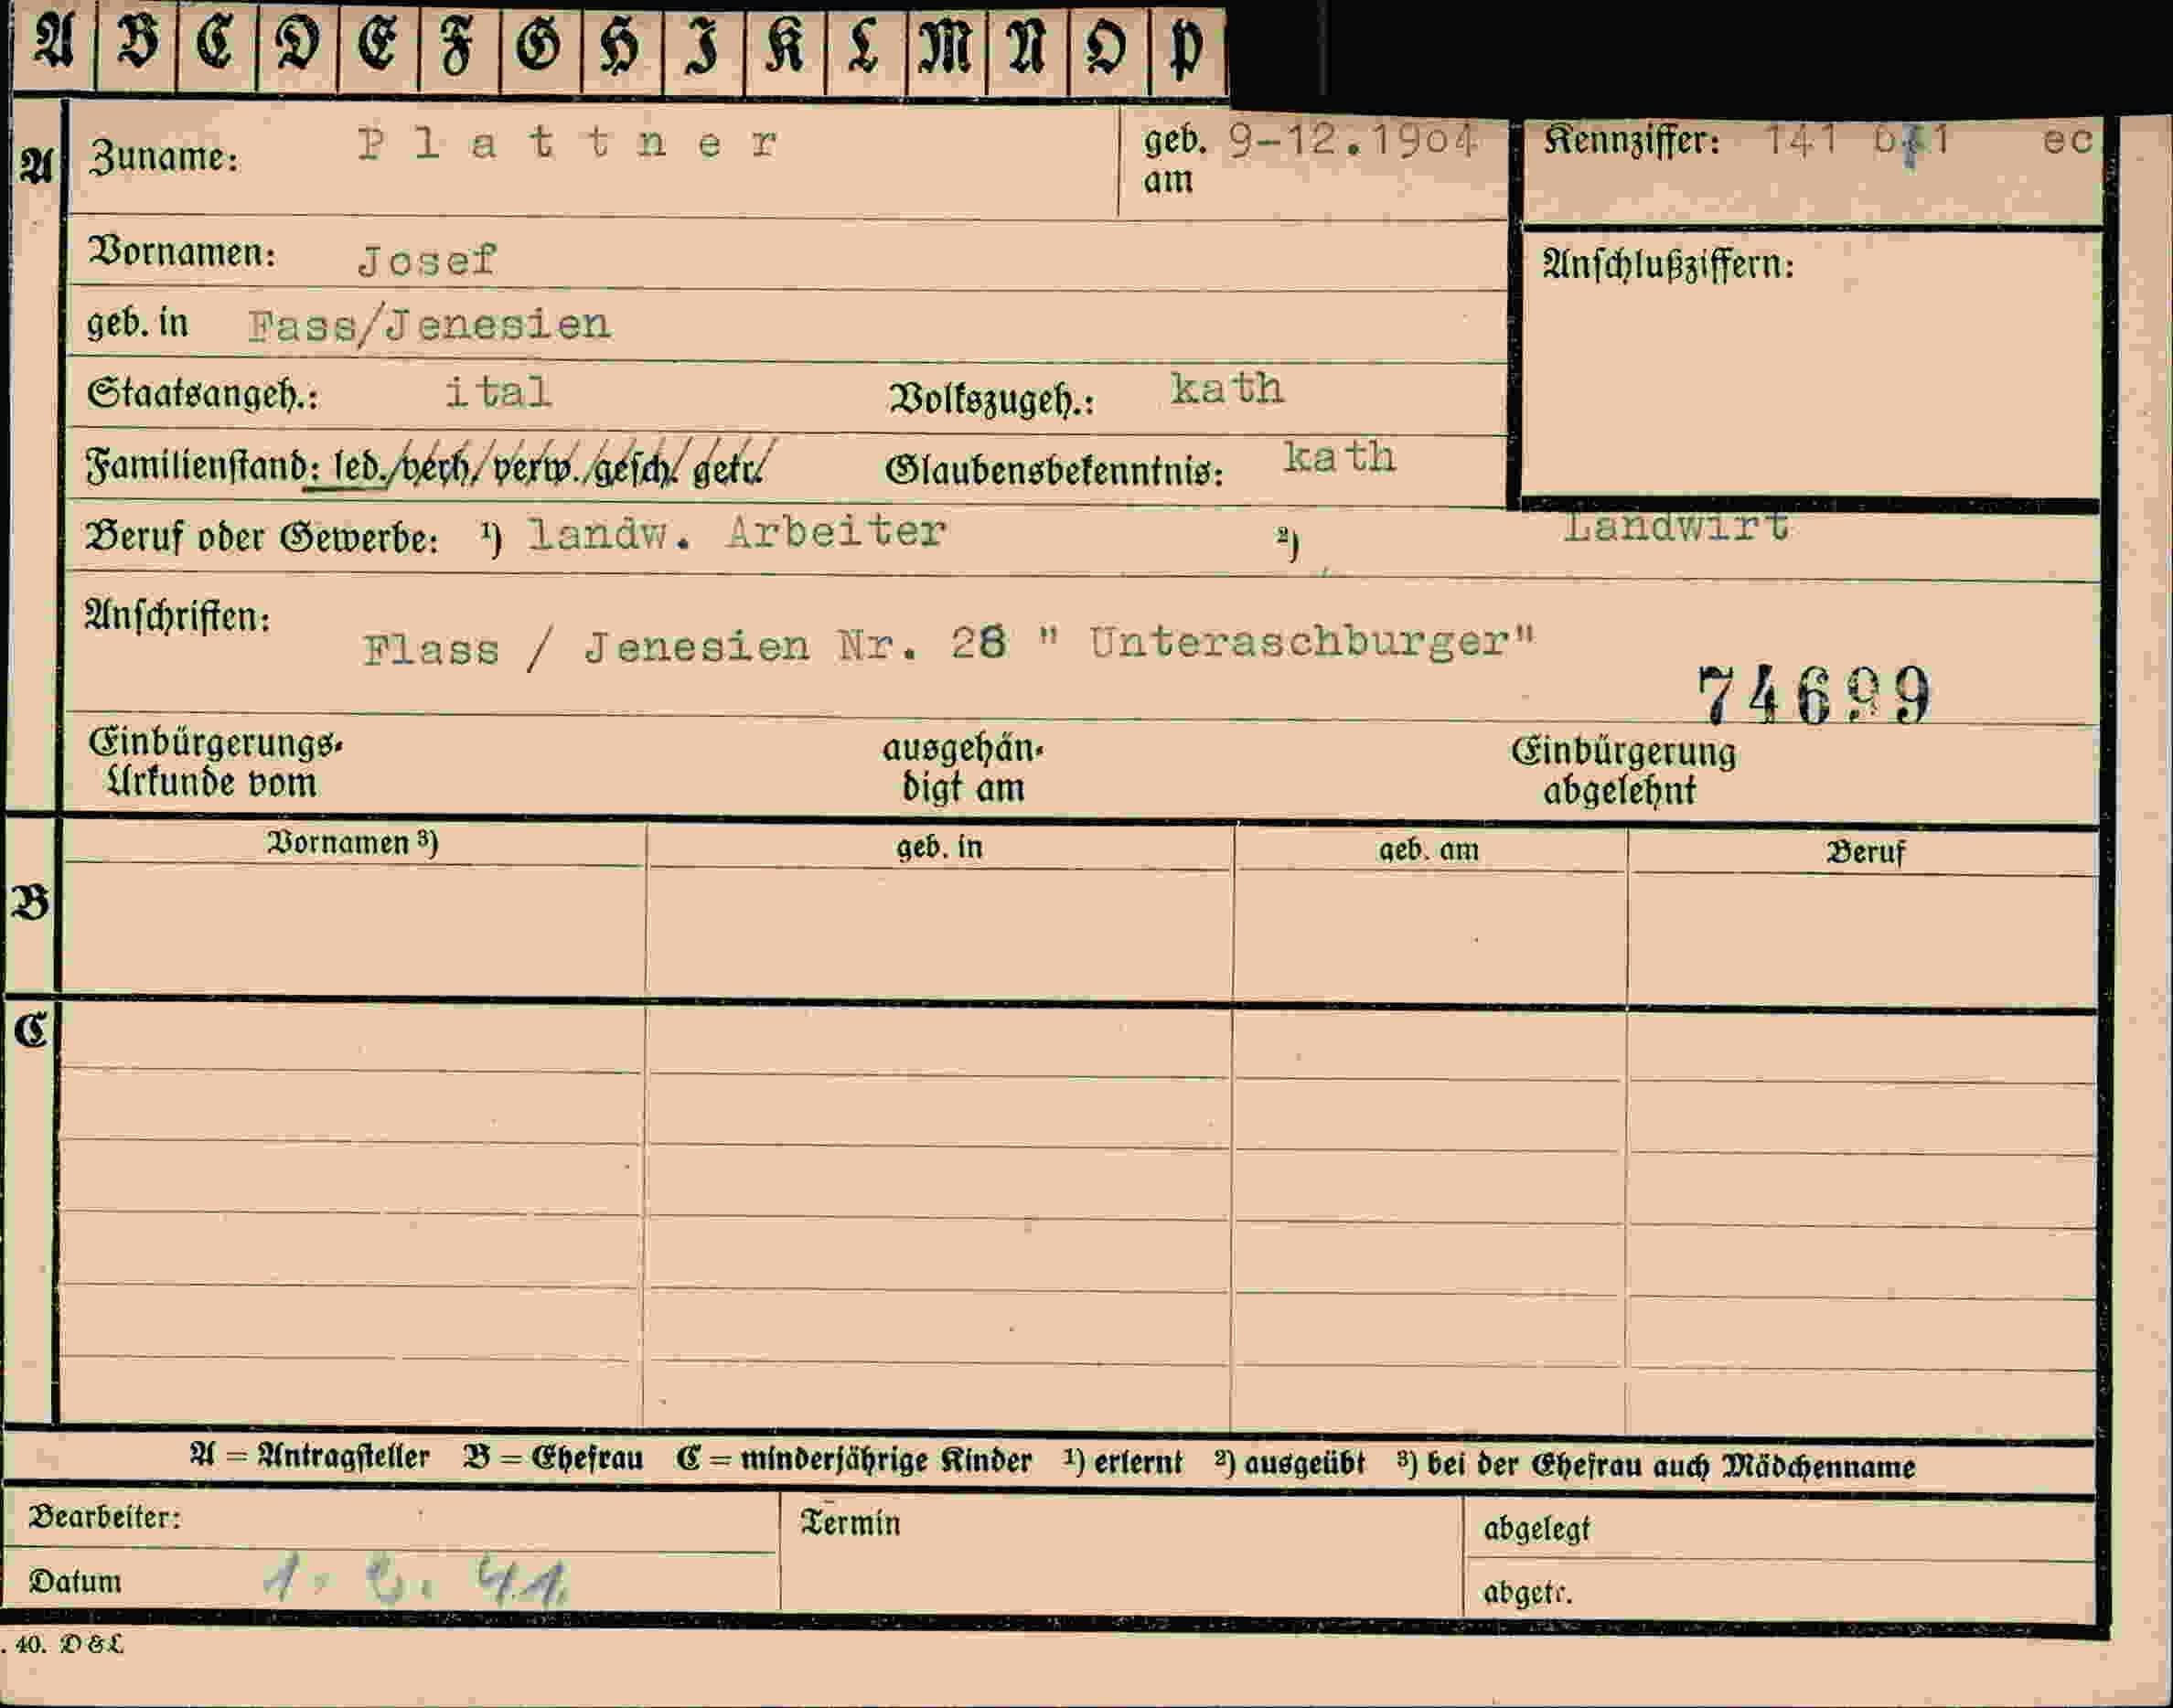 A B C D E F G H I K L M N O P
A Zuname: Plattner geb. am 9-12.1904 Kennziffer: 141 ec
Vornamen: Josef Anschlußziffern:
geb. in Fass/Jenesien
Staatsangeh.: ital Volkszugeh.: kath
Familienstand: led./verh./verw./gesch./getr. Glaubensbekenntnis: kath
Beruf oder Gewerbe: ¹) landw. Arbeiter ²) Landwirt
Anschriften: Flass / Jenesien Nr. 28 " Unteraschburger"
74699
Einbürgerungs- ausgehän- Einbürgerung
Urkunde vom digt am abgelehnt
Vornamen ³) geb. in geb. am Beruf
B
C
A = Antragsteller B = Ehefrau C = minderjährige Kinder ¹) erlernt ²) ausgeübt ³) bei der Ehefrau auch Mädchenname
Bearbeiter: Termin abgelegt
Datum 1. 41. abgetr.
. 40. D & L